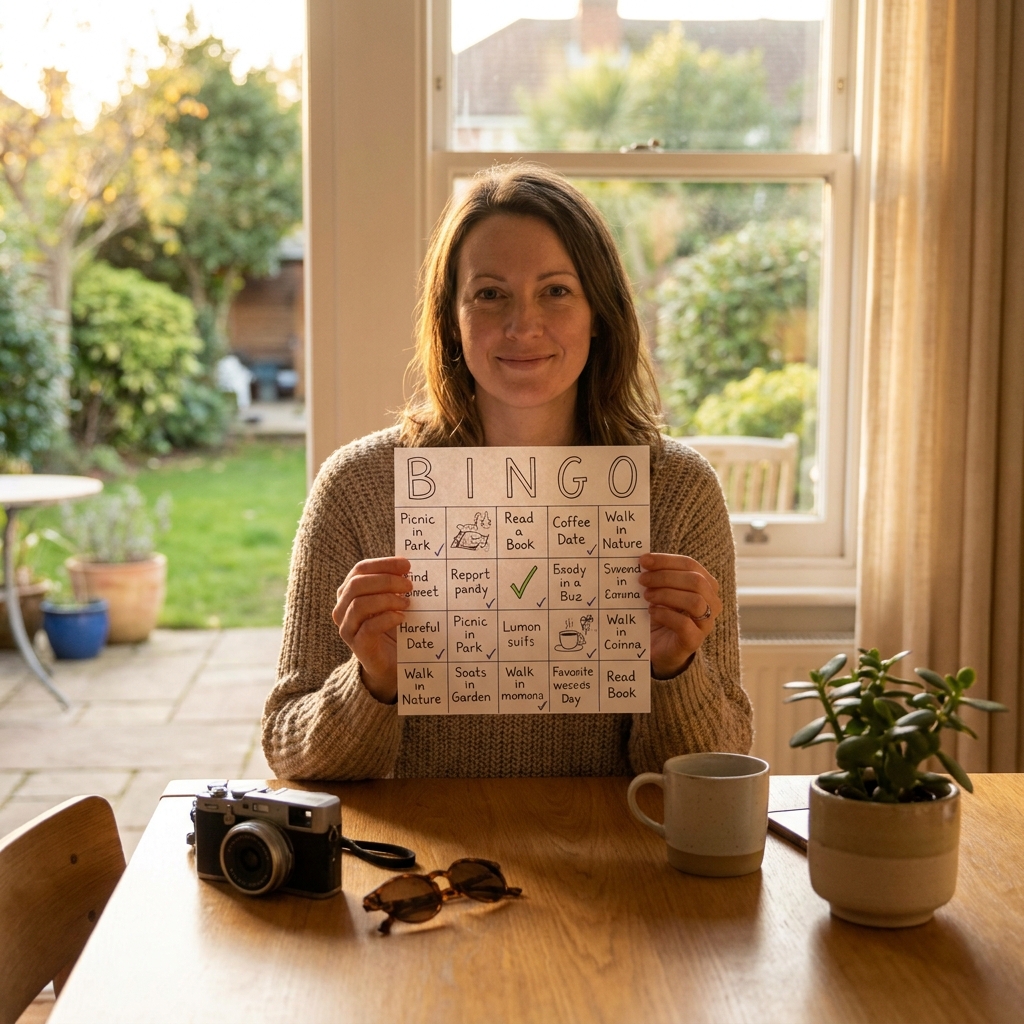 B I N G O
Picnic
in
Park
Read
a
Book
Coffee
Date
Walk
in
Nature
Report
pandy
Esody
in a
Buz
in
Hareful
Date
Picnic
in
Park
Lumon
suifs
Walk
in
Coinna
Walk
in
Nature
Soats
in
Garden
Walk
in
momona
Favorite
Day
Read
Book